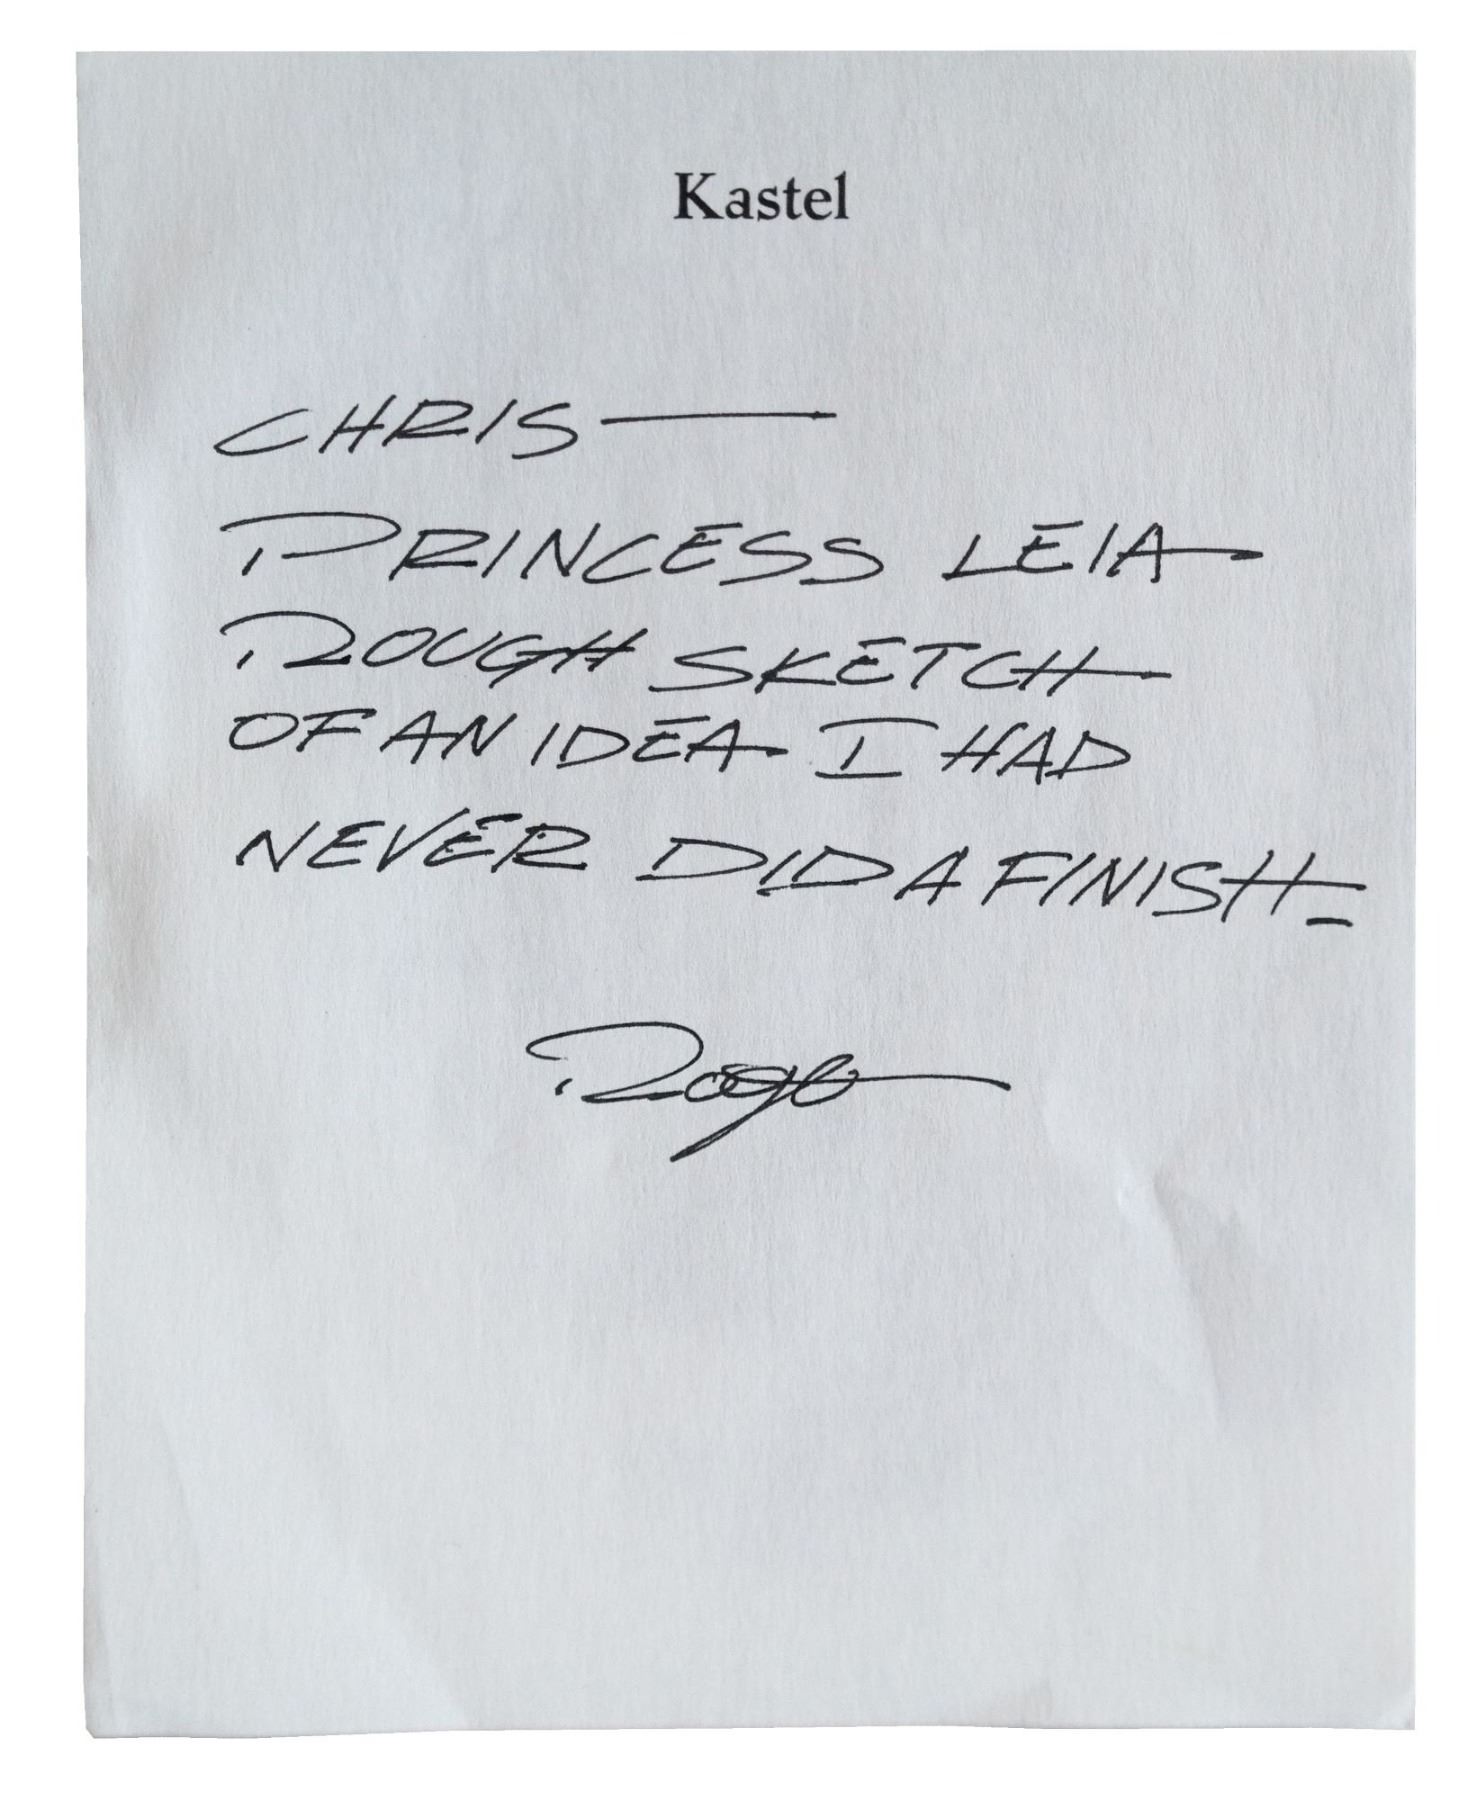 Kastel
CHRIS—
PRINCESS LEIA
ROUGH SKETCH
OF AN IDEA I HAD
NEVER DID A FINISH.
Roger